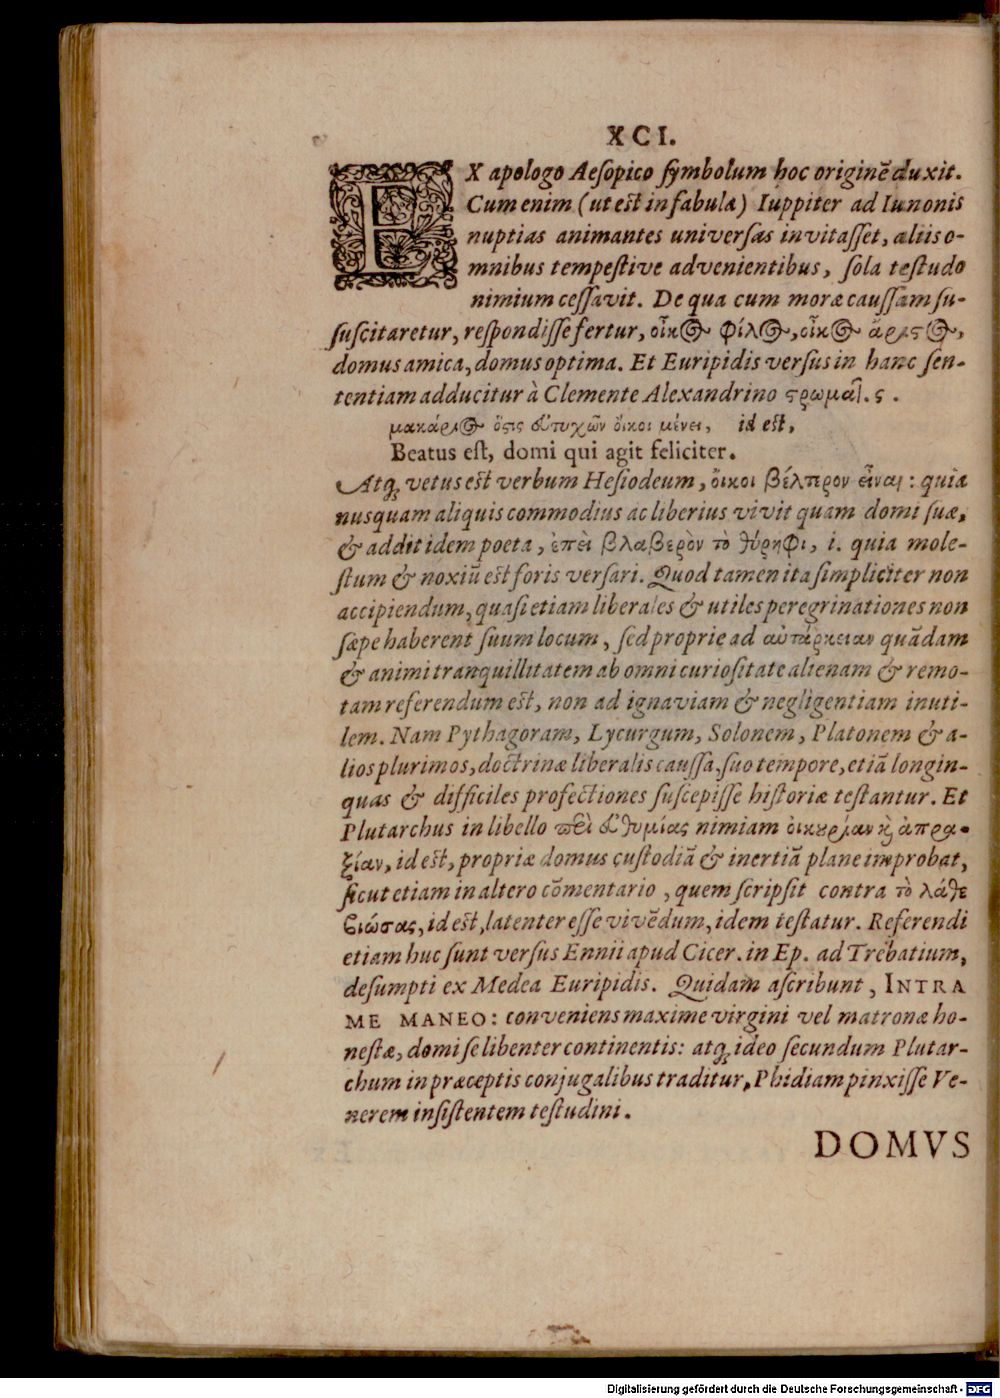 XCI.
EX apologo Aesopico symbolum hoc originē duxit.
Cum enim (ut est in fabula) Iuppiter ad Iunonis
nuptias animantes universas invitasset, aliis o-
mnibus tempestive advenientibus, sola testudo
nimium cessavit. De qua cum moræ caussam su-
suscitaretur, respondisse fertur, οἶκος φίλος, οἶκος ἄριστος,
domus amica, domus optima. Et Euripidis versus in hanc sen-
tentiam adducitur à Clemente Alexandrino στρωματ. ς.
μακάριος ὅστις εὐτυχῶν οἴκοι μένει, id est,
Beatus est, domi qui agit feliciter.
Atq; vetus est verbum Hesiodeum, οἴκοι βέλτερον εἶναι: quia
nusquam aliquis commodius ac liberius vivit quam domi suæ,
& addit idem poeta, ἐπεὶ βλαβερὸν τὸ θύρηφι, i. quia mole-
stum & noxiū est foris versari. Quod tamen ita simpliciter non
accipiendum, quasi etiam liberales & utiles peregrinationes non
sæpe haberent suum locum, sed proprie ad αὐτάρκειαν quādam
& animi tranquillitatem ab omni curiositate alienam & remo-
tam referendum est, non ad ignaviam & negligentiam inuti-
lem. Nam Pythagoram, Lycurgum, Solonem, Platonem & a-
lios plurimos, doctrinæ liberalis caussa, suo tempore, etiā longin-
quas & difficiles profectiones suscepisse historiæ testantur. Et
Plutarchus in libello περὶ εὐθυμίας nimiam οἰκουρίαν καὶ ἀπρα-
ξίαν, id est, propriæ domus custodiā & inertiā plane improbat,
sicut etiam in altero cōmentario, quem scripsit contra τὸ λάθε
βιώσας, id est, latenter esse vivēdum, idem testatur. Referendi
etiam huc sunt versus Ennii apud Cicer. in Ep. ad Trebatium,
desumpti ex Medea Euripidis. Quidam ascribunt, INTRA
ME MANEO: conveniens maxime virgini vel matronæ ho-
nestæ, domi se libenter continentis: atq; ideo secundum Plutar-
chum in præceptis conjugalibus traditur, Phidiam pinxisse Ve-
nerem insistentem testudini.
DOMVS
Digitalisierung gefördert durch die Deutsche Forschungsgemeinschaft - DFG